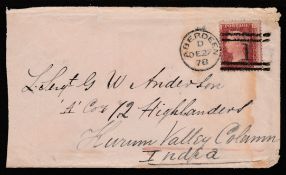 ABERDEEN
D
DE 27
78
POSTAGE
1
L. Sergt G W Anderson
'A' Coy 72 Highlanders
Kurum Valley Column
India